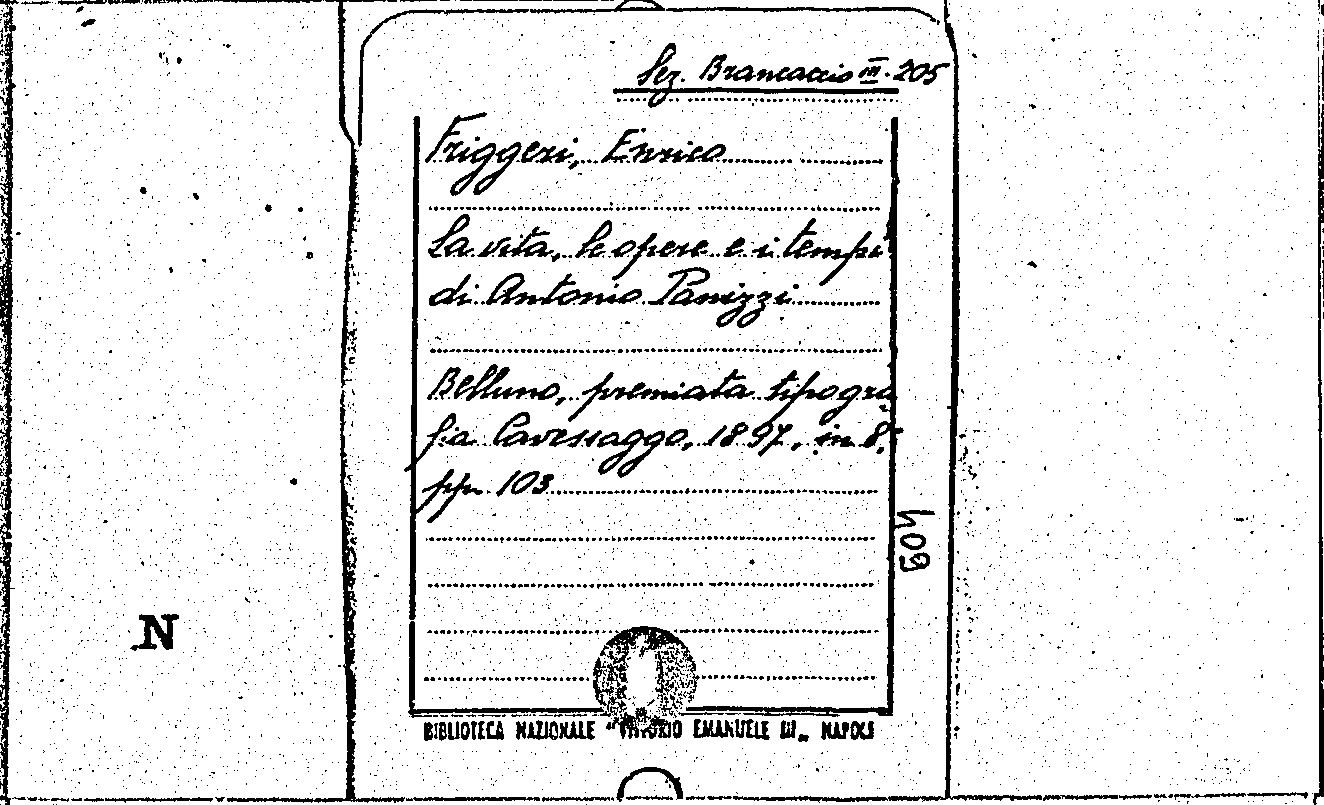 Sez. Brancaccio III. 205
Friggeri, Enrico
La vita, le opere e i tempi
di Antonio Panizzi
Belluno, premiata tipogra
fia Cavessaggo, 1897, in 8,
pp. 103
409
N
BIBLIOTECA NAZIONALE "VITTORIO EMANUELE III„ NAPOLI